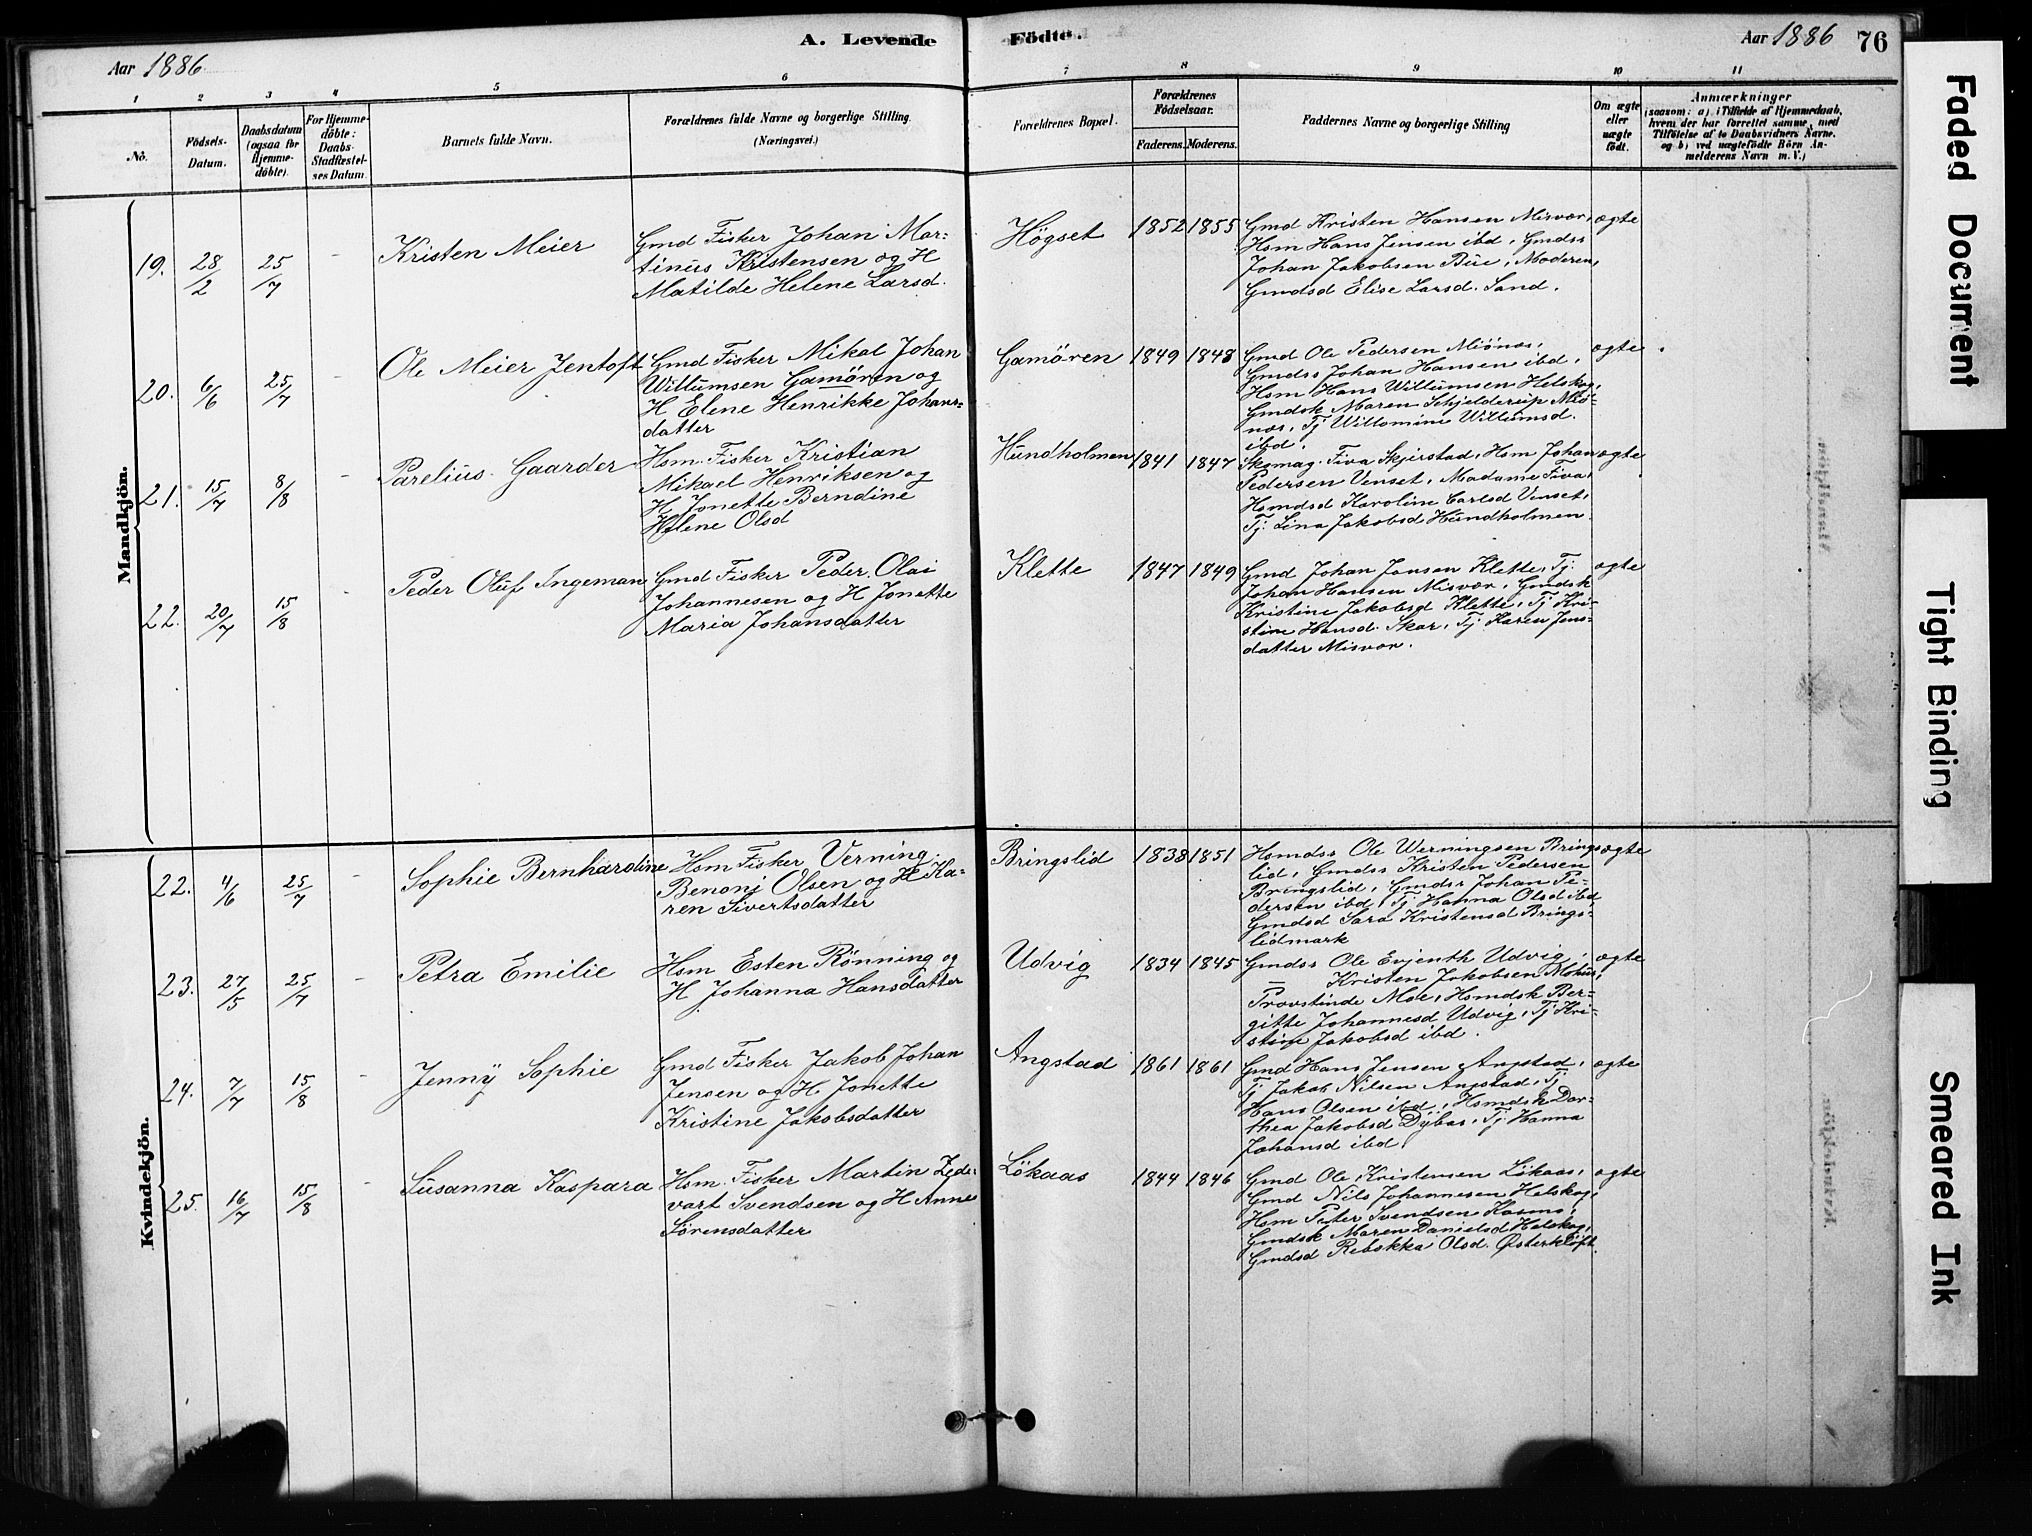 A. Levende Födte.
Aar 1886
Aar 1886 76
1 2 3 4 5 6 7 8 9 10 11
No.
Födsels-
Datum.
Daabsdatum
(ogsaa for
Hjemme-
döbte).
For Hjemme-
döbte:
Daabs-
Stadfæstel-
ses Datum.
Barnets fulde Navn.
Forældrenes fulde Navne og borgerlige Stilling.
(Næringsvei.)
Forældrenes Bopæl.
Forældrenes
Födselsaar.
Faderens. Moderens.
Faddernes Navne og borgerlige Stilling
Om ægte
eller
uægte
födt.
Anmærkninger
(saasom: a) i Tilfælde af Hjemmedaab,
hvem der har forrettet samme, med
Tilföielse af to Daabsvidners Navne.
og b) ved uægtefödte Börn An-
melderens Navn m. V.)
Mandkjön.
19. 28/2 25/7 - Kristen Meier
Gmd Fisker Johan Mar-
tinus Kristensen og H
Matilde Helene Larsd.
Högset 1852 1855
Gmd Kristen Hansen Misvær,
Hsm Hans Jensen ibd, Gmdss
Johan Jakobsen Bue, Moderen,
Gmdsd Elise Larsd. Sand.
ægte
20. 6/6 25/7 - Ole Meier Jentoft
Gmd Fisker Mikal Johan
Willumsen Gamören og
H Elene Henrikke Johans-
datter
Gamören 1849 1848
Gmd Ole Pedersen Miönæs,
Gmdss Johan Hansen ibd,
Hsm Hans Willumsen Helskog,
Gmdsk Maren Schjelderup Miö-
næs, Tj Willomine Willumsd.
ibd.
ægte
21. 15/7 8/8 - Parelius Gaarder
Hsm. Fisker Kristian
Mikael Henriksen og
H Jonette Berndine
Helene Olsd
Hundholmen 1841 1847
Skomag. Fiva Skjerstad, Hsm Johan
Pedersen Venset, Madame Fiva,
Hsmdsd Karoline Carlsd Venset,
Tj. Lina Jakobsd Hundholmen.
ægte
22. 20/7 15/8 - Peder Oluf Ingeman
Gmd Fisker Peder Olai
Johannesen og H Jonette
Maria Johansdatter
Klette 1847 1849
Gmd Johan Jonsen Klette, Tj.
Johan Hansen Misvær, Gmdsk
Kristine Jakobsd Klette, Tj Kri-
stine Hansd. Skar, Tj Karen Jens-
datter Misvær.
ægte
Kvindekjön.
22. 4/6 25/7 - Sophie Bernhardine
Hsm Fisker Verning
Benonj Olsen og H Ka-
ren Sivertsdatter
Bringslid 1838 1851
Hsmdss Ole Werningsen Brings-
lid, Gmdss Kristen Pedersen
Bringslid, Gmdss Johan Pe-
dersen ibd, Tj Hanna Olsd ibd
Gmdsd Sara Kristensd Brings-
lidmark
ægte
23. 27/5 25/7 - Petra Emilie
Hsm Esten Rönning og
H Johanna Hansdatter
Udvig 1834 1845
Gmdss Ole Evjenth Udvig,
— Kristen Jakobsen
Provstinde Moe, Hsmdsk Ber-
gitte Johannesd Udvig, Tj Kri-
stine Jakobsd ibd.
ægte
24. 7/7 15/8 - Jenny Sophie
Gmd Fisker Jakob Johan
Jensen og H Jonette
Kristine Jakobsdatter
Angstad 1861 1861
Gmd Hans Jensen Angstad,
Tj Jakob Nilsen Angstad, Tj.
Hans Olsen ibd, Hsmdsk Dor-
thea Jakobsd Dybas, Tj Hanna
Johansd ibd.
ægte
25. 16/7 15/8 Susanna Kaspara
Hsm. Fisker Martin Zede-
vart Svendsen og H Anne
Sörensdatter
Lökaas 1844 1846
Gmd Ole Kristensen Lökaas,
Gmd Nils Johannesen Helskog,
Hsm Peter Svendsen Kasmo,
Gmdsk Maren Danielsd Helskog,
Gmdsd Rebekka Olsd. Østerkløft
ægte
Faded Document
Tight Binding
Smeared Ink